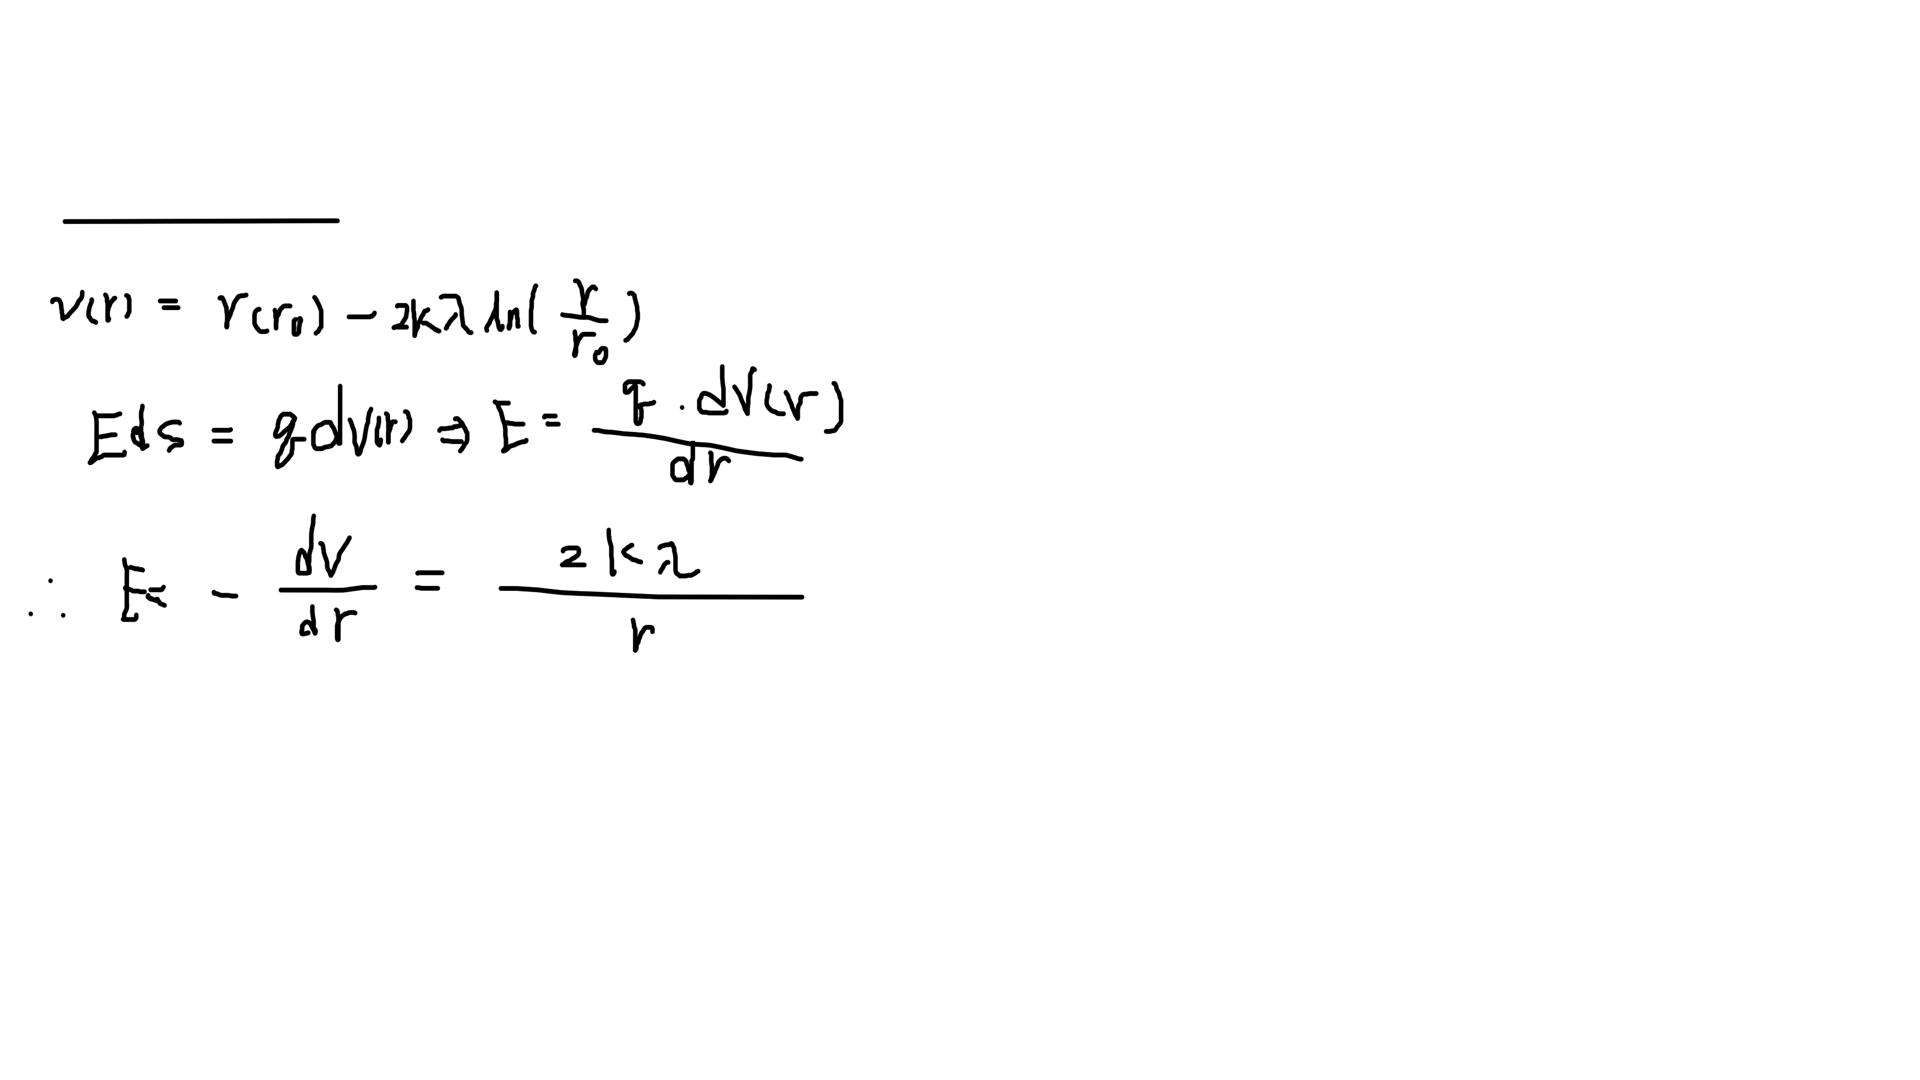 v(r) = r(r₀) - 2kλ ln(r/r₀)
Eds = qdV(r) ⇒ E = q · dV(r) / dr
∴ E = - dv/dr = 2kλ / r